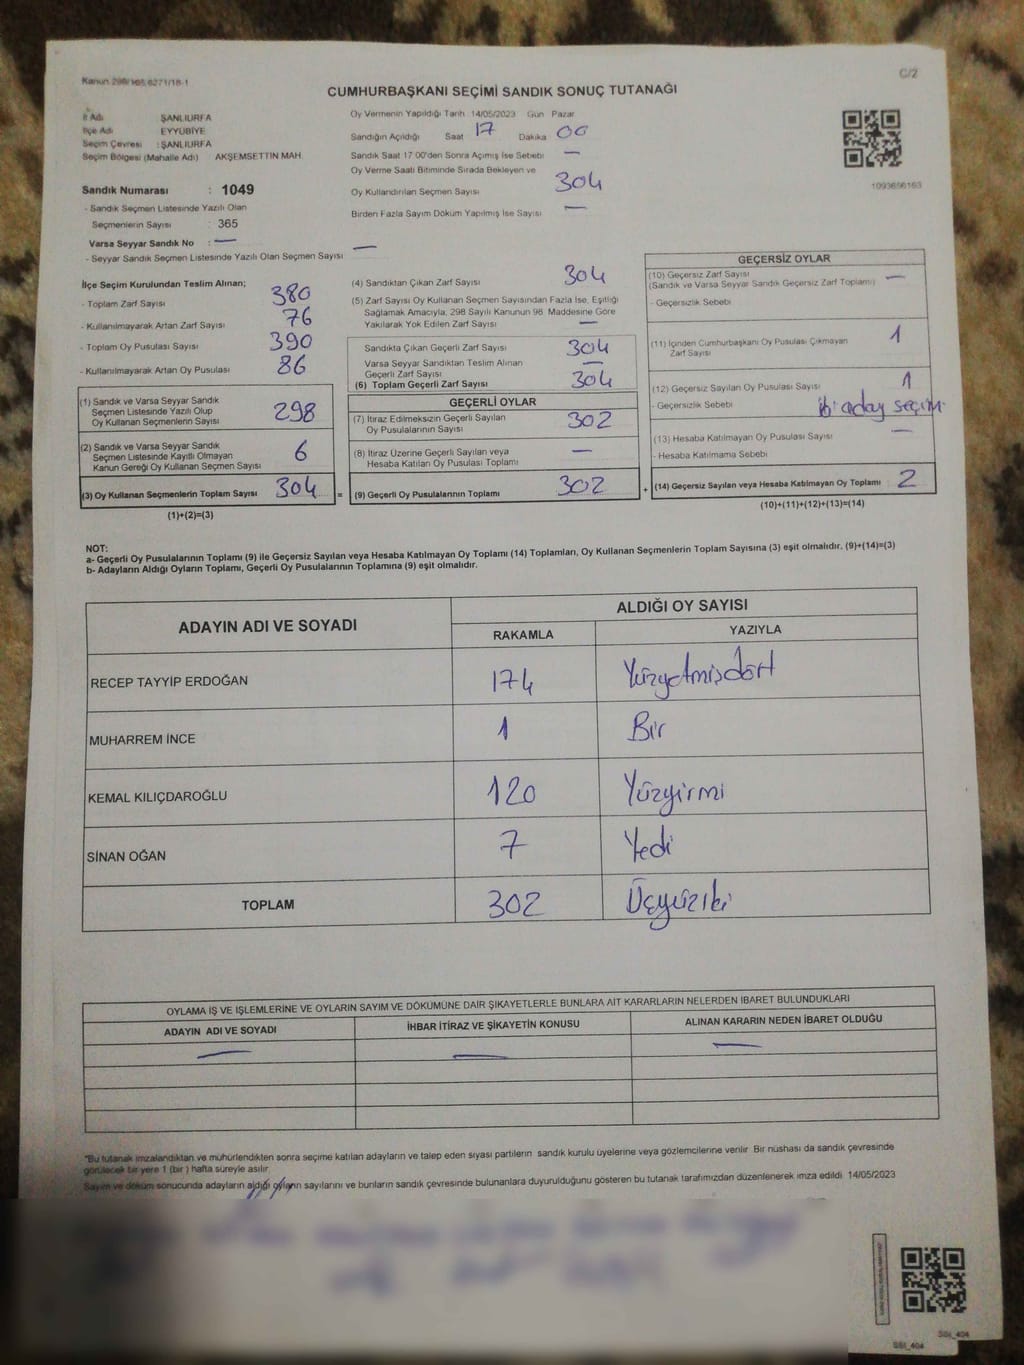 Kanun 298/
C/2
CUMHURBAŞKANI SEÇİMİ SANDIK SONUÇ TUTANAĞI
İl Adı ŞANLIURFA
İlçe Adı EYYÜBİYE
Seçim Çevresi : ŞANLIURFA
Seçim Bölgesi (Mahalle Adı) AKŞEMSETTİN MAH.
Sandık Numarası : 1049
- Sandık Seçmen Listesinde Yazılı Olan
Seçmenlerin Sayısı : 365
Varsa Seyyar Sandık No : —
- Seyyar Sandık Seçmen Listesinde Yazılı Olan Seçmen Sayısı : —
Oy Vermenin Yapıldığı Tarih 14/05/2023 Gün Pazar
Sandığın Açıldığı Saat 17 Dakika 00
Sandık Saat 17:00'den Sonra Açılmış İse Sebebi —
Oy Verme Saati Bitiminde Sırada Bekleyen ve
Oy Kullandırılan Seçmen Sayısı 304
Birden Fazla Sayım Döküm Yapılmış İse Sayısı —
1093656163
İlçe Seçim Kurulundan Teslim Alınan;
- Toplam Zarf Sayısı 380
- Kullanılmayarak Artan Zarf Sayısı 76
- Toplam Oy Pusulası Sayısı 390
- Kullanılmayarak Artan Oy Pusulası 86
(1) Sandık ve Varsa Seyyar Sandık
Seçmen Listesinde Yazılı Olup
Oy Kullanan Seçmenlerin Sayısı 298
(2) Sandık ve Varsa Seyyar Sandık
Seçmen Listesinde Kayıtlı Olmayan
Kanun Gereği Oy Kullanan Seçmen Sayısı 6
(3) Oy Kullanan Seçmenlerin Toplam Sayısı 304 =
(1)+(2)=(3)
(4) Sandıktan Çıkan Zarf Sayısı 304
(5) Zarf Sayısı Oy Kullanan Seçmen Sayısından Fazla İse, Eşitliği
Sağlamak Amacıyla, 298 Sayılı Kanunun 98. Maddesine Göre
Yakılarak Yok Edilen Zarf Sayısı —
Sandıkta Çıkan Geçerli Zarf Sayısı 304
Varsa Seyyar Sandıktan Teslim Alınan
Geçerli Zarf Sayısı —
(6) Toplam Geçerli Zarf Sayısı 304
GEÇERLİ OYLAR
(7) İtiraz Edilmeksizin Geçerli Sayılan
Oy Pusulalarının Sayısı 302
(8) İtiraz Üzerine Geçerli Sayılan veya
Hesaba Katılan Oy Pusulası Toplamı —
(9) Geçerli Oy Pusulalarının Toplamı 302 +
GEÇERSİZ OYLAR
(10) Geçersiz Zarf Sayısı —
(Sandık ve Varsa Seyyar Sandık Geçersiz Zarf Toplamı)
- Geçersizlik Sebebi
(11) İçinden Cumhurbaşkanı Oy Pusulası Çıkmayan
Zarf Sayısı 1
(12) Geçersiz Sayılan Oy Pusulası Sayısı 1
- Geçersizlik Sebebi aday seçim.
(13) Hesaba Katılmayan Oy Pusulası Sayısı —
- Hesaba Katılmama Sebebi
(14) Geçersiz Sayılan veya Hesaba Katılmayan Oy Toplamı 2
(10)+(11)+(12)+(13)=(14)
NOT:
a- Geçerli Oy Pusulalarının Toplamı (9) ile Geçersiz Sayılan veya Hesaba Katılmayan Oy Toplamı (14) Toplamları, Oy Kullanan Seçmenlerin Toplam Sayısına (3) eşit olmalıdır. (9)+(14)=(3)
b- Adayların Aldığı Oyların Toplamı, Geçerli Oy Pusulalarının Toplamına (9) eşit olmalıdır.
ADAYIN ADI VE SOYADI ALDIĞI OY SAYISI
RAKAMLA YAZIYLA
RECEP TAYYİP ERDOĞAN 174 Yüzyetmişdört
MUHARREM İNCE 1 Bir
KEMAL KILIÇDAROĞLU 120 Yüzyirmi
SİNAN OĞAN 7 Yedi
TOPLAM 302 Üçyüziki
OYLAMA İŞ VE İŞLEMLERİNE VE OYLARIN SAYIM VE DÖKÜMÜNE DAİR ŞİKAYETLERLE BUNLARA AİT KARARLARIN NELERDEN İBARET BULUNDUKLARI
ADAYIN ADI VE SOYADI İHBAR İTİRAZ VE ŞİKAYETİN KONUSU ALINAN KARARIN NEDEN İBARET OLDUĞU
— — —
*Bu tutanak imzalandıktan ve mühürlendikten sonra seçime katılan adayların ve talep eden siyasi partilerin sandık kurulu üyelerine veya gözlemcilerine verilir. Bir nüshası da sandık çevresinde
görülecek bir yere 1 (bir ) hafta süreyle asılır.
Sayım ve döküm sonucunda adayların aldığı oyların sayılarını ve bunların sandık çevresinde bulunanlara duyurulduğunu gösteren bu tutanak tarafımızdan düzenlenerek imza edildi. 14/05/2023
SSI_404
SSI_404